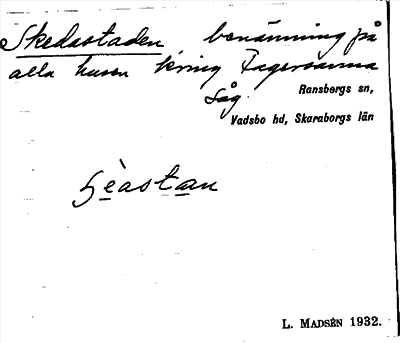 Skedastaden benämning på
alla husen kring Fagersanna
såg.
Ransbergs sn,
Vadsbo hd, Skaraborgs län
L. MADSÉN 1932.